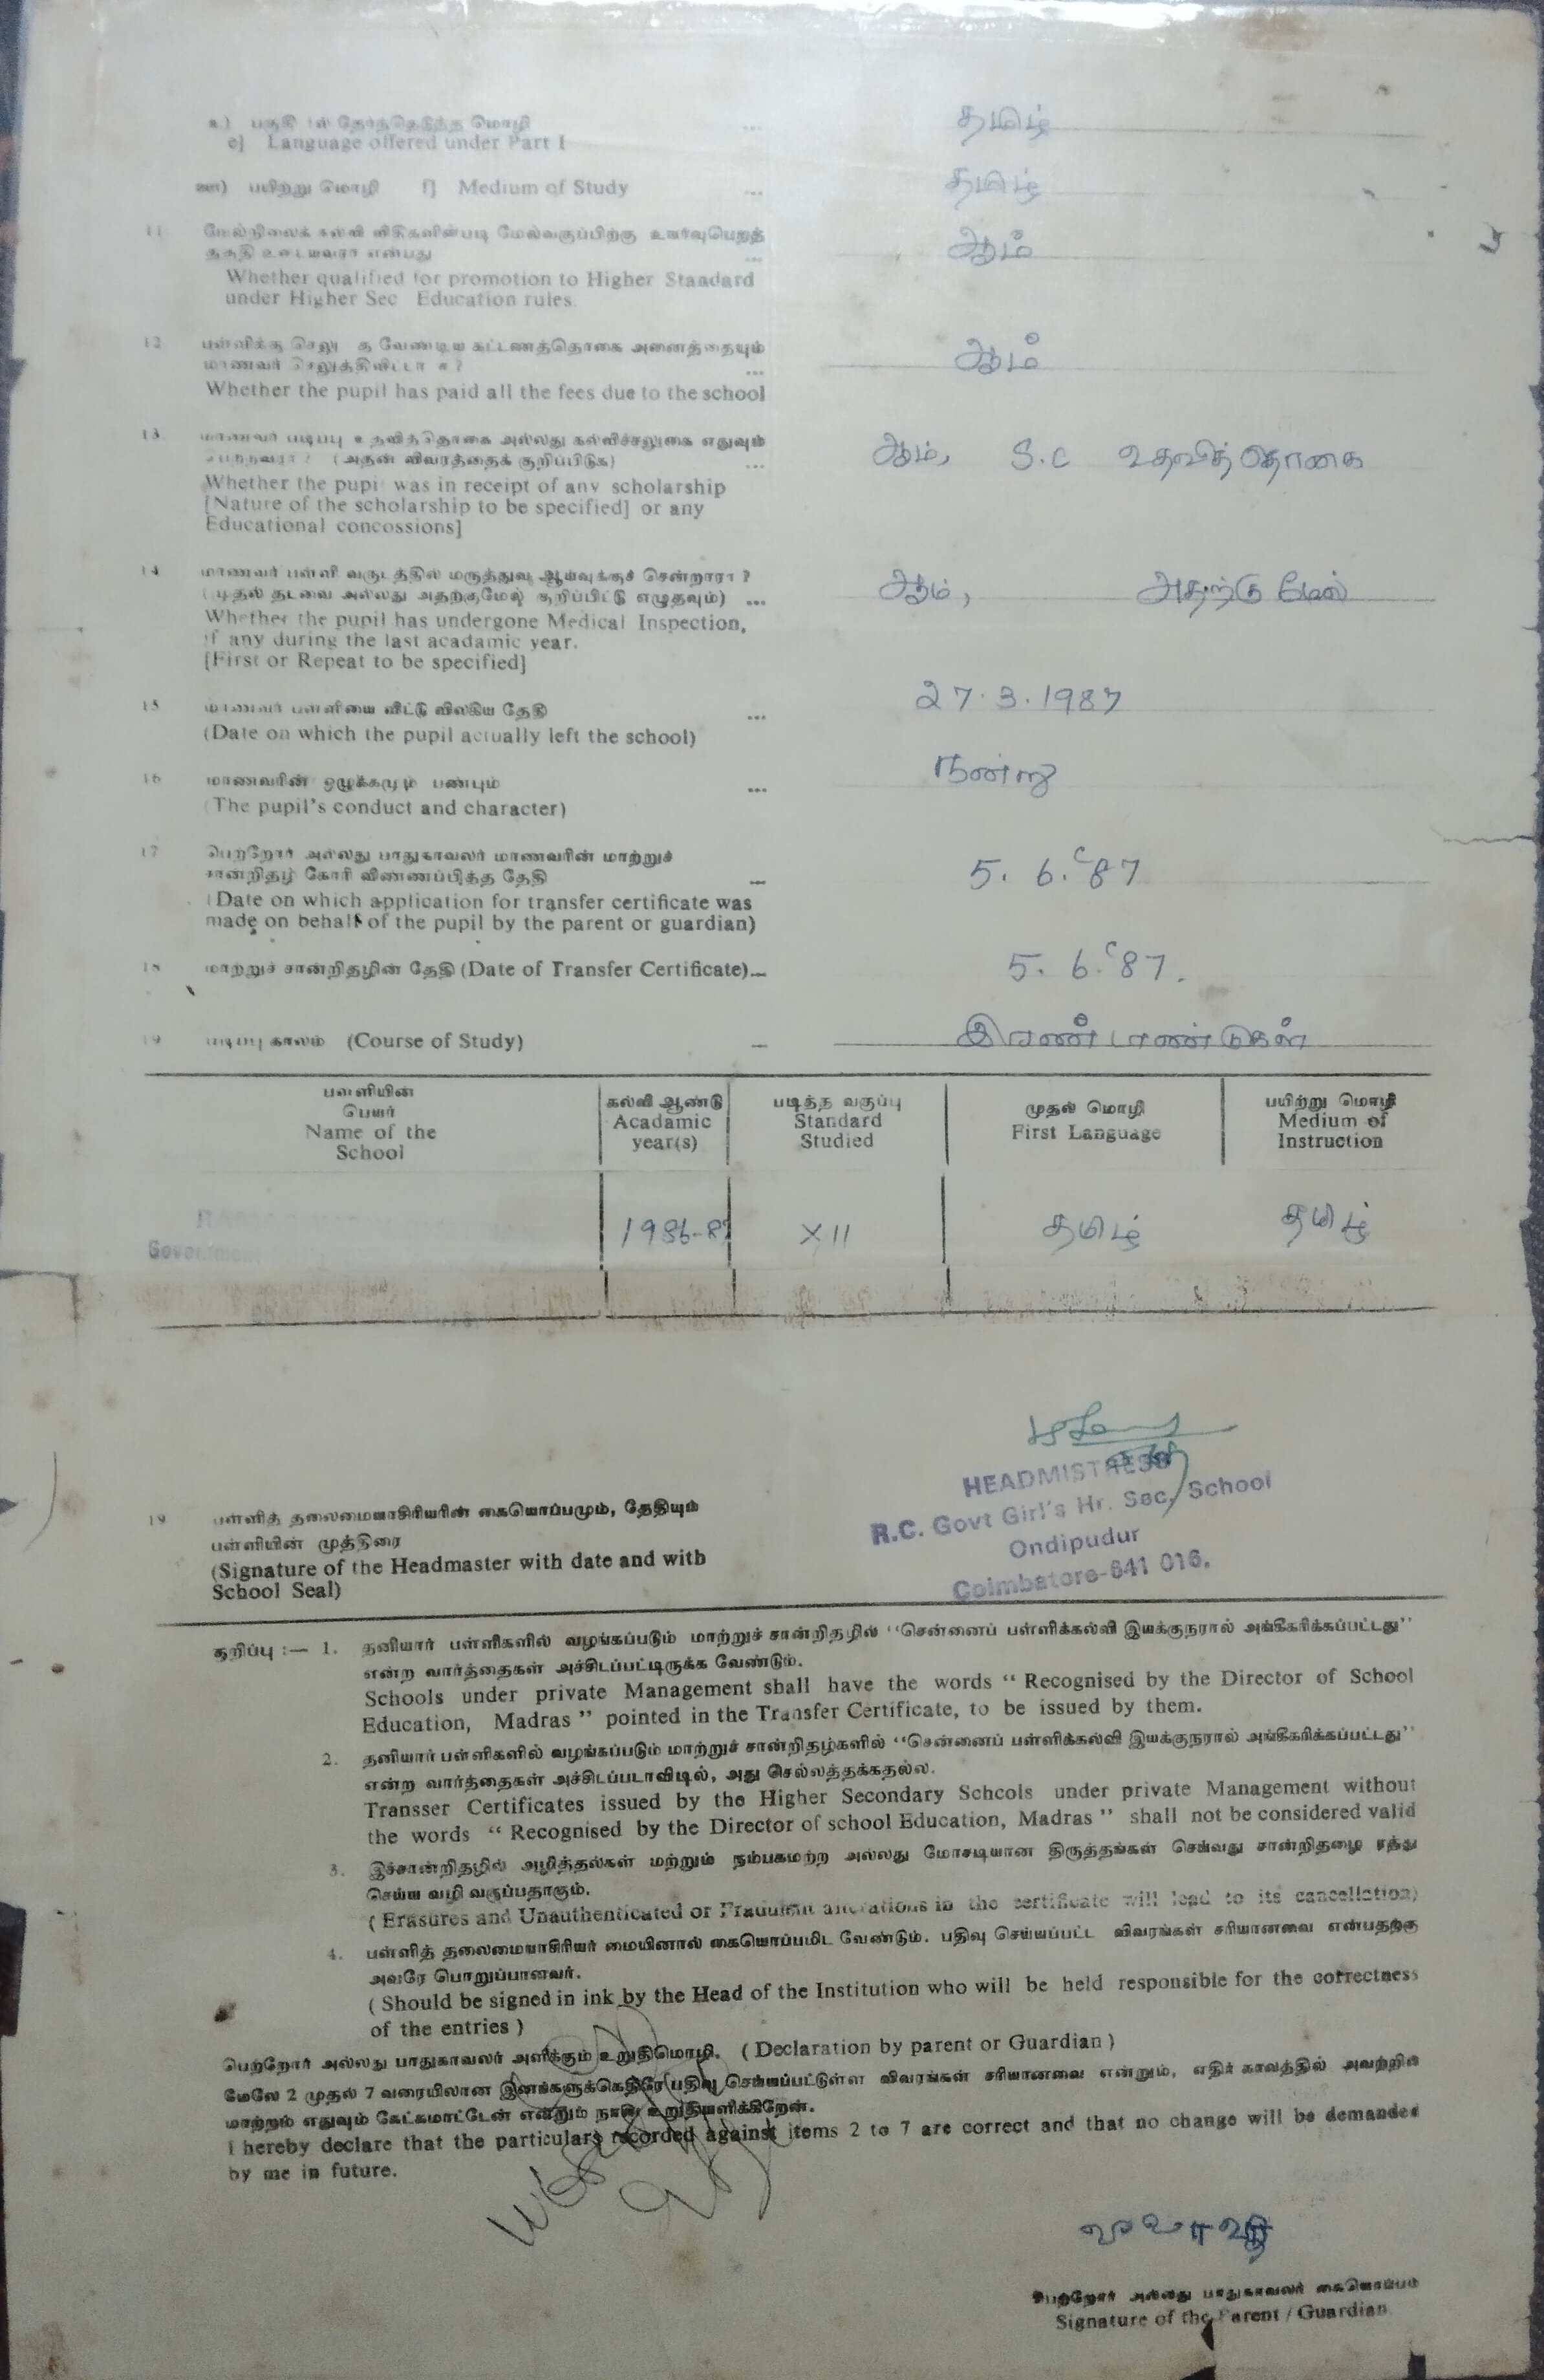 உ) பகுதி 1ல் தேர்ந்தெடுத்த மொழி ... தமிழ்
e] Language offered under Part I
ஊ) பயிற்று மொழி f] Medium of Study ... தமிழ்
11 மேல்நிலைக் கல்வி விதிகளின்படி மேல்வகுப்பிற்கு உயர்வுபெறத்
தகுதி உடையவரா என்பது ... ஆம்
Whether qualified for promotion to Higher Standard
under Higher Sec Education rules.
12 பள்ளிக்கு செலு த வேண்டிய கட்டணத்தொகை அனைத்தையும்
மாணவர் செலுத்திவிட்டா ? ... ஆம்
Whether the pupil has paid all the fees due to the school
13 மாணவர் படிப்பு உதவித்தொகை அல்லது கல்விச்சலுகை எதுவும்
பெற்றவரா ? (அதன் விவரத்தைக் குறிப்பிடுக) ... ஆம், S.C உதவித்தொகை
Whether the pupi was in receipt of any scholarship
[Nature of the scholarship to be specified] or any
Educational concossions]
14 மாணவர் பள்ளி வருடத்தில் மருத்துவ ஆய்வுக்குச் சென்றாரா ?
(முதல் தடவை அல்லது அதற்குமேல் குறிப்பிட்டு எழுதவும்) ... ஆம், அதற்கு மேல்
Whether the pupil has undergone Medical Inspection,
if any during the last acadamic year.
[First or Repeat to be specified]
15 மாணவர் பள்ளியை விட்டு விலகிய தேதி ... 27.3.1987
(Date on which the pupil actually left the school)
16 மாணவரின் ஒழுக்கமும் பண்பும் ... நன்று
(The pupil's conduct and character)
17 பெற்றோர் அல்லது பாதுகாவலர் மாணவரின் மாற்றுச்
சான்றிதழ் கோரி விண்ணப்பித்த தேதி ... 5. 6. '87
(Date on which application for transfer certificate was
made on behalf of the pupil by the parent or guardian)
18 மாற்றுச் சான்றிதழின் தேதி (Date of Transfer Certificate)... 5. 6. '87.
19 படிப்பு காலம் (Course of Study) ... இரண்டாண்டுகள்
பள்ளியின் பெயர் Name of the School
கல்வி ஆண்டு Acadamic year(s)
படித்த வகுப்பு Standard Studied
முதல் மொழி First Language
பயிற்று மொழி Medium of Instruction
Government 1986-87 XII தமிழ் தமிழ்
HEADMISTRESS
R.C. Govt Girl's Hr. Sec, School
Ondipudur
Coimbatore-641 016.
19 பள்ளித் தலைமையாசிரியரின் கையொப்பமும், தேதியும்
பள்ளியின் முத்திரை
(Signature of the Headmaster with date and with
School Seal)
குறிப்பு :— 1. தனியார் பள்ளிகளில் வழங்கப்படும் மாற்றுச் சான்றிதழில் "சென்னைப் பள்ளிக்கல்வி இயக்குநரால் அங்கீகரிக்கப்பட்டது"
என்ற வார்த்தைகள் அச்சிடப்பட்டிருக்க வேண்டும்.
Schools under private Management shall have the words " Recognised by the Director of School
Education, Madras " pointed in the Transfer Certificate, to be issued by them.
2. தனியார் பள்ளிகளில் வழங்கப்படும் மாற்றுச் சான்றிதழ்களில் "சென்னைப் பள்ளிக்கல்வி இயக்குநரால் அங்கீகரிக்கப்பட்டது"
என்ற வார்த்தைகள் அச்சிடப்படாவிடில், அது செல்லத்தக்கதல்ல.
Transser Certificates issued by the Higher Secondary Schcols under private Management without
the words " Recognised by the Director of school Education, Madras " shall not be considered valid
3. இச்சான்றிதழில் அழித்தல்கள் மற்றும் நம்பகமற்ற அல்லது மோசடியான திருத்தங்கள் செய்வது சான்றிதழை ரத்து
செய்ய வழி வகுப்பதாகும்.
( Erasures and Unauthenticated or Fraudulent alterations in the certificate will lead to its cancellation)
4. பள்ளித் தலைமையாசிரியர் மையினால் கையொப்பமிட வேண்டும். பதிவு செய்யப்பட்ட விவரங்கள் சரியானவை என்பதற்கு
அவரே பொறுப்பானவர்.
( Should be signed in ink by the Head of the Institution who will be held responsible for the correctness
of the entries )
பெற்றோர் அல்லது பாதுகாவலர் அளிக்கும் உறுதிமொழி. ( Declaration by parent or Guardian )
மேலே 2 முதல் 7 வரையிலான இனங்களுக்கெதிரே பதிவு செய்யப்பட்டுள்ள விவரங்கள் சரியானவை என்றும், எதிர் காலத்தில் அவற்றில்
மாற்றம் எதுவும் கேட்கமாட்டேன் என்றும் நான் உறுதியளிக்கிறேன்.
I hereby declare that the particulars recorded against items 2 to 7 are correct and that no change will be demanded
by me in future.
பெற்றோர் அல்லது பாதுகாவலர் கையொப்பம்
Signature of the Parent / Guardian